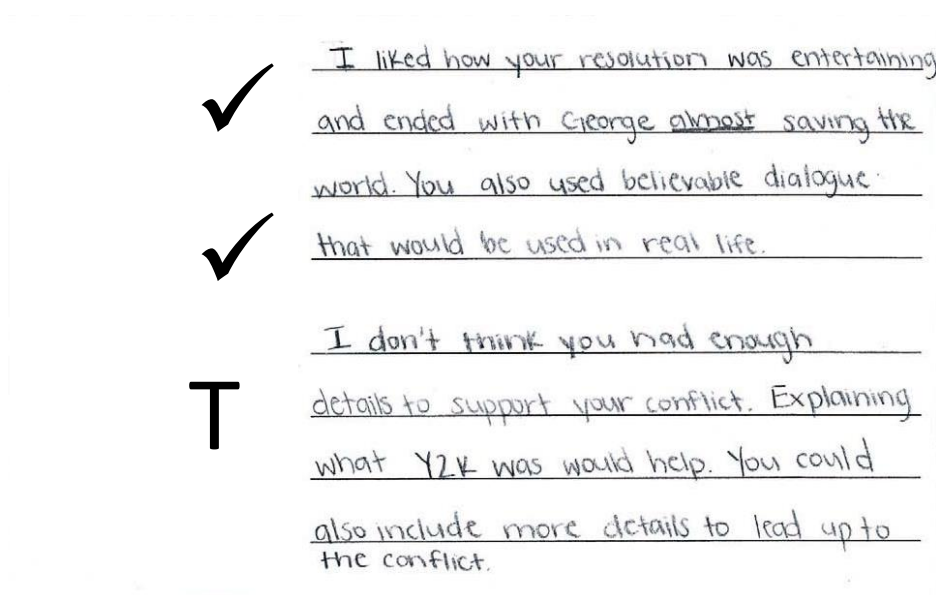 I liked how your resolution was entertaining
✓
and ended with George almost saving the
world. You also used believable dialogue
✓
that would be used in real life.
I don't think you had enough
T
details to support your conflict. Explaining
what Y2K was would help. You could
also include more details to lead up to
the conflict.